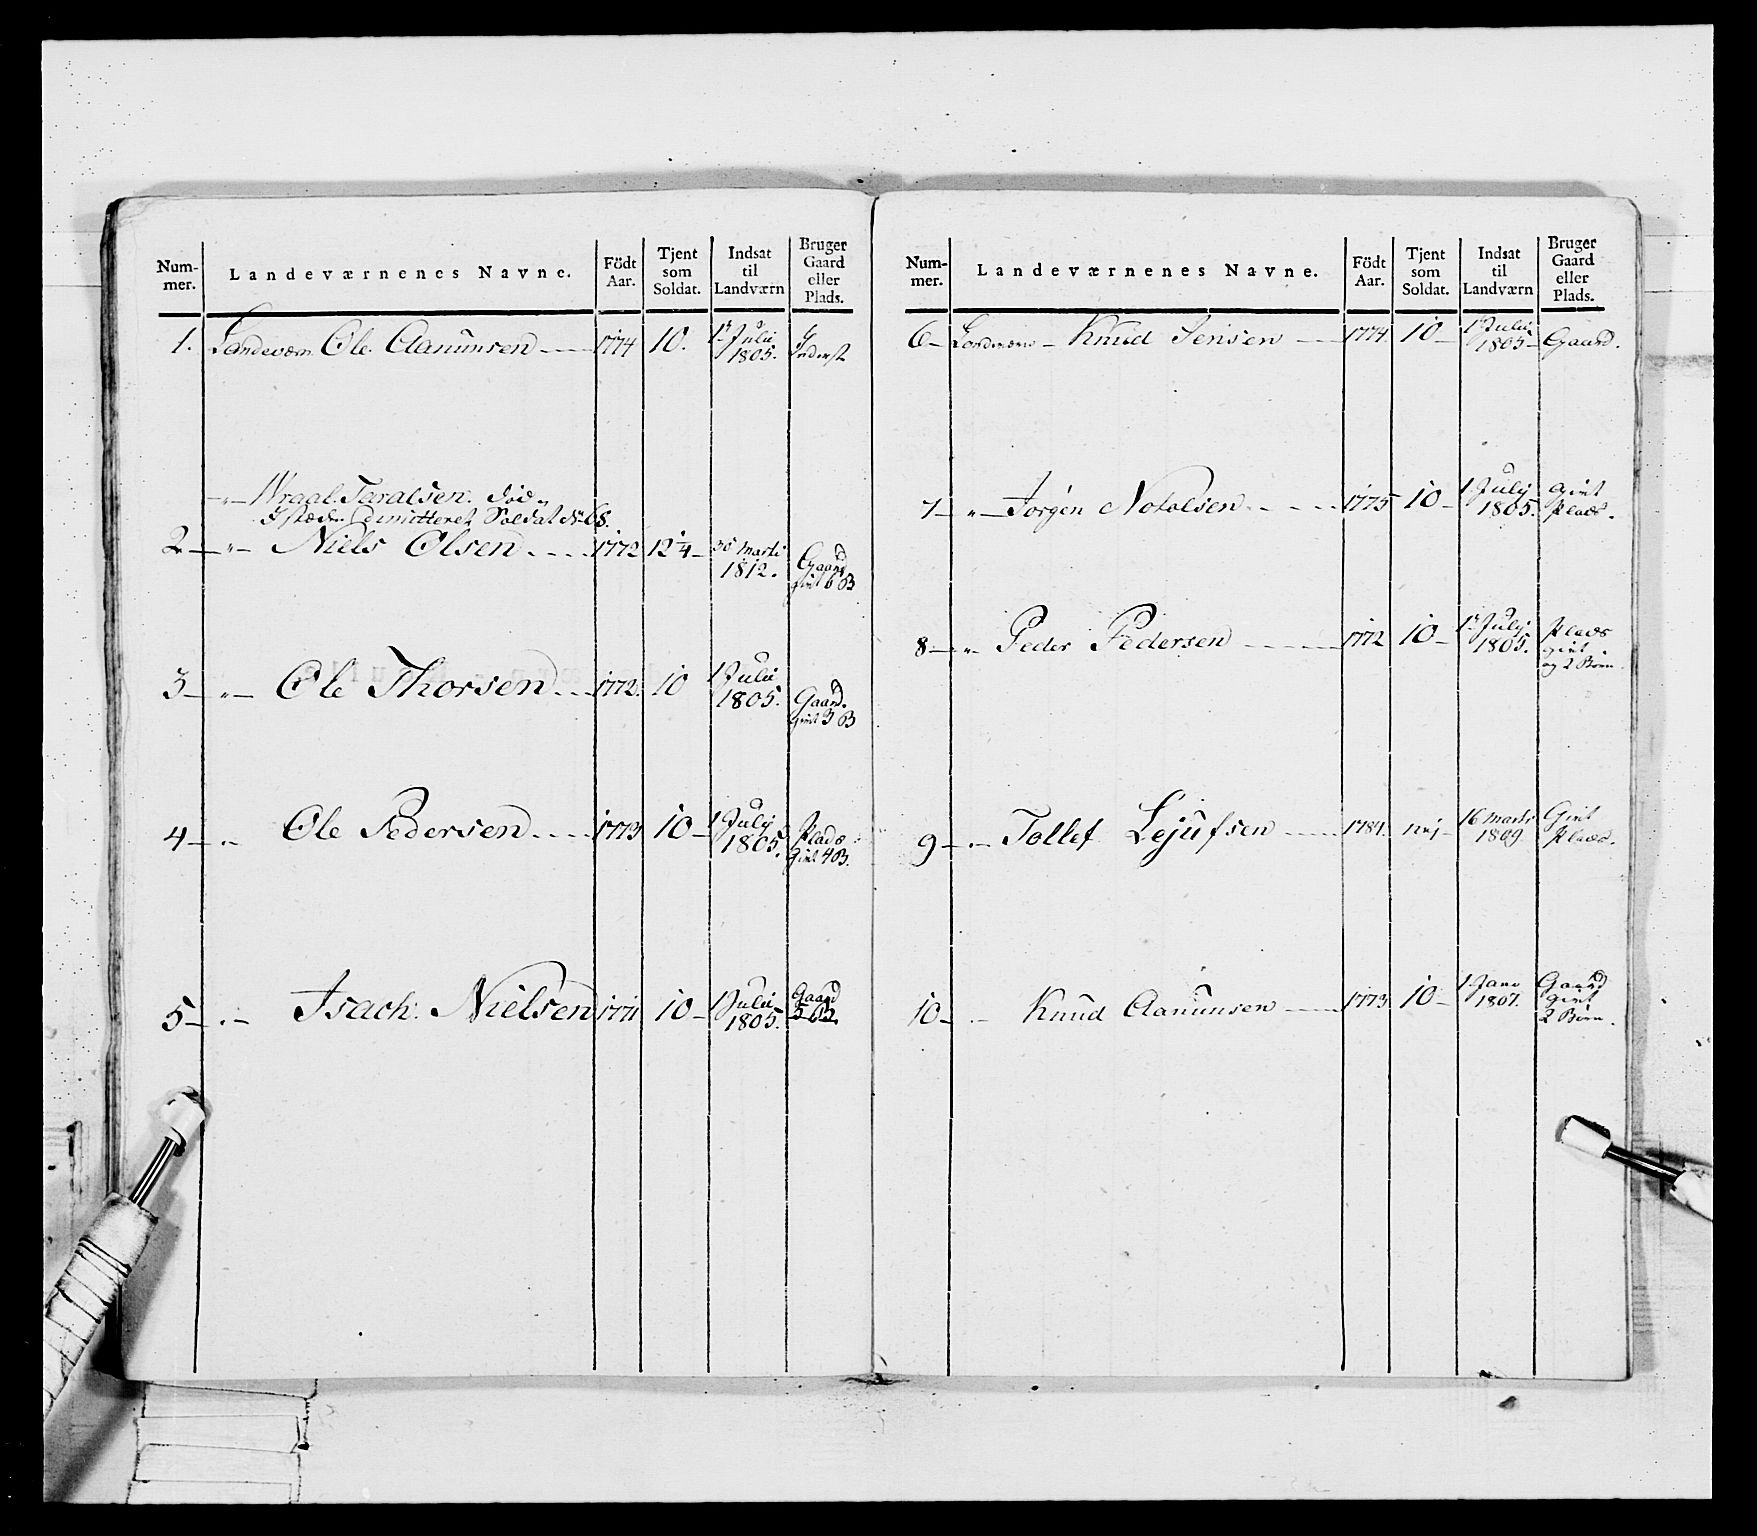 Num-mer. Landeværnenes Navne. Födt Aar. Tjent som Soldat. Indsat til Landværn Bruger Gaard eller Plads.
1. Landeværn Ole Aanunsen 1774 10. 1 Julii 1805. Inderst
Wraal Taralsen. död
I stædn dimitteret Soldat No 68.
2 — " — Niels Olsen 1772 12 1/4 30 Marti 1812. Gaard givt 6 B
3 — " — Ole Thorsen 1772. 10 1 Julii 1805. Gaard. givt 3 B
4 — " — Ole Pedersen 1773 10 1 July 1805. Plads Givt 4 B.
5 — " — Isach Nielsen 1771 10 1 Julii 1805. Gaard 5 B.
Num-mer. Landeværnenes Navne. Födt Aar. Tjent som Soldat. Indsat til Landværn Bruger Gaard eller Plads.
6 — Landeværn — Knud Jensen 1774. 10 1 Julii 1805 Gaard.
7 — " — Jörgen Notolsen 1775 10 1 July 1805. givt Plads.
8 — " — Peder Pedersen 1772 10 1 July 1805. Plads givt og 2 Börn
9 — " — Tollef Lejufsen 1784. nej 16 Marti 1809 Givt Plads.
10 — " — Knud Aanunsen 1773 10 1 Janv 1807. Gaard givt 2 Börn.